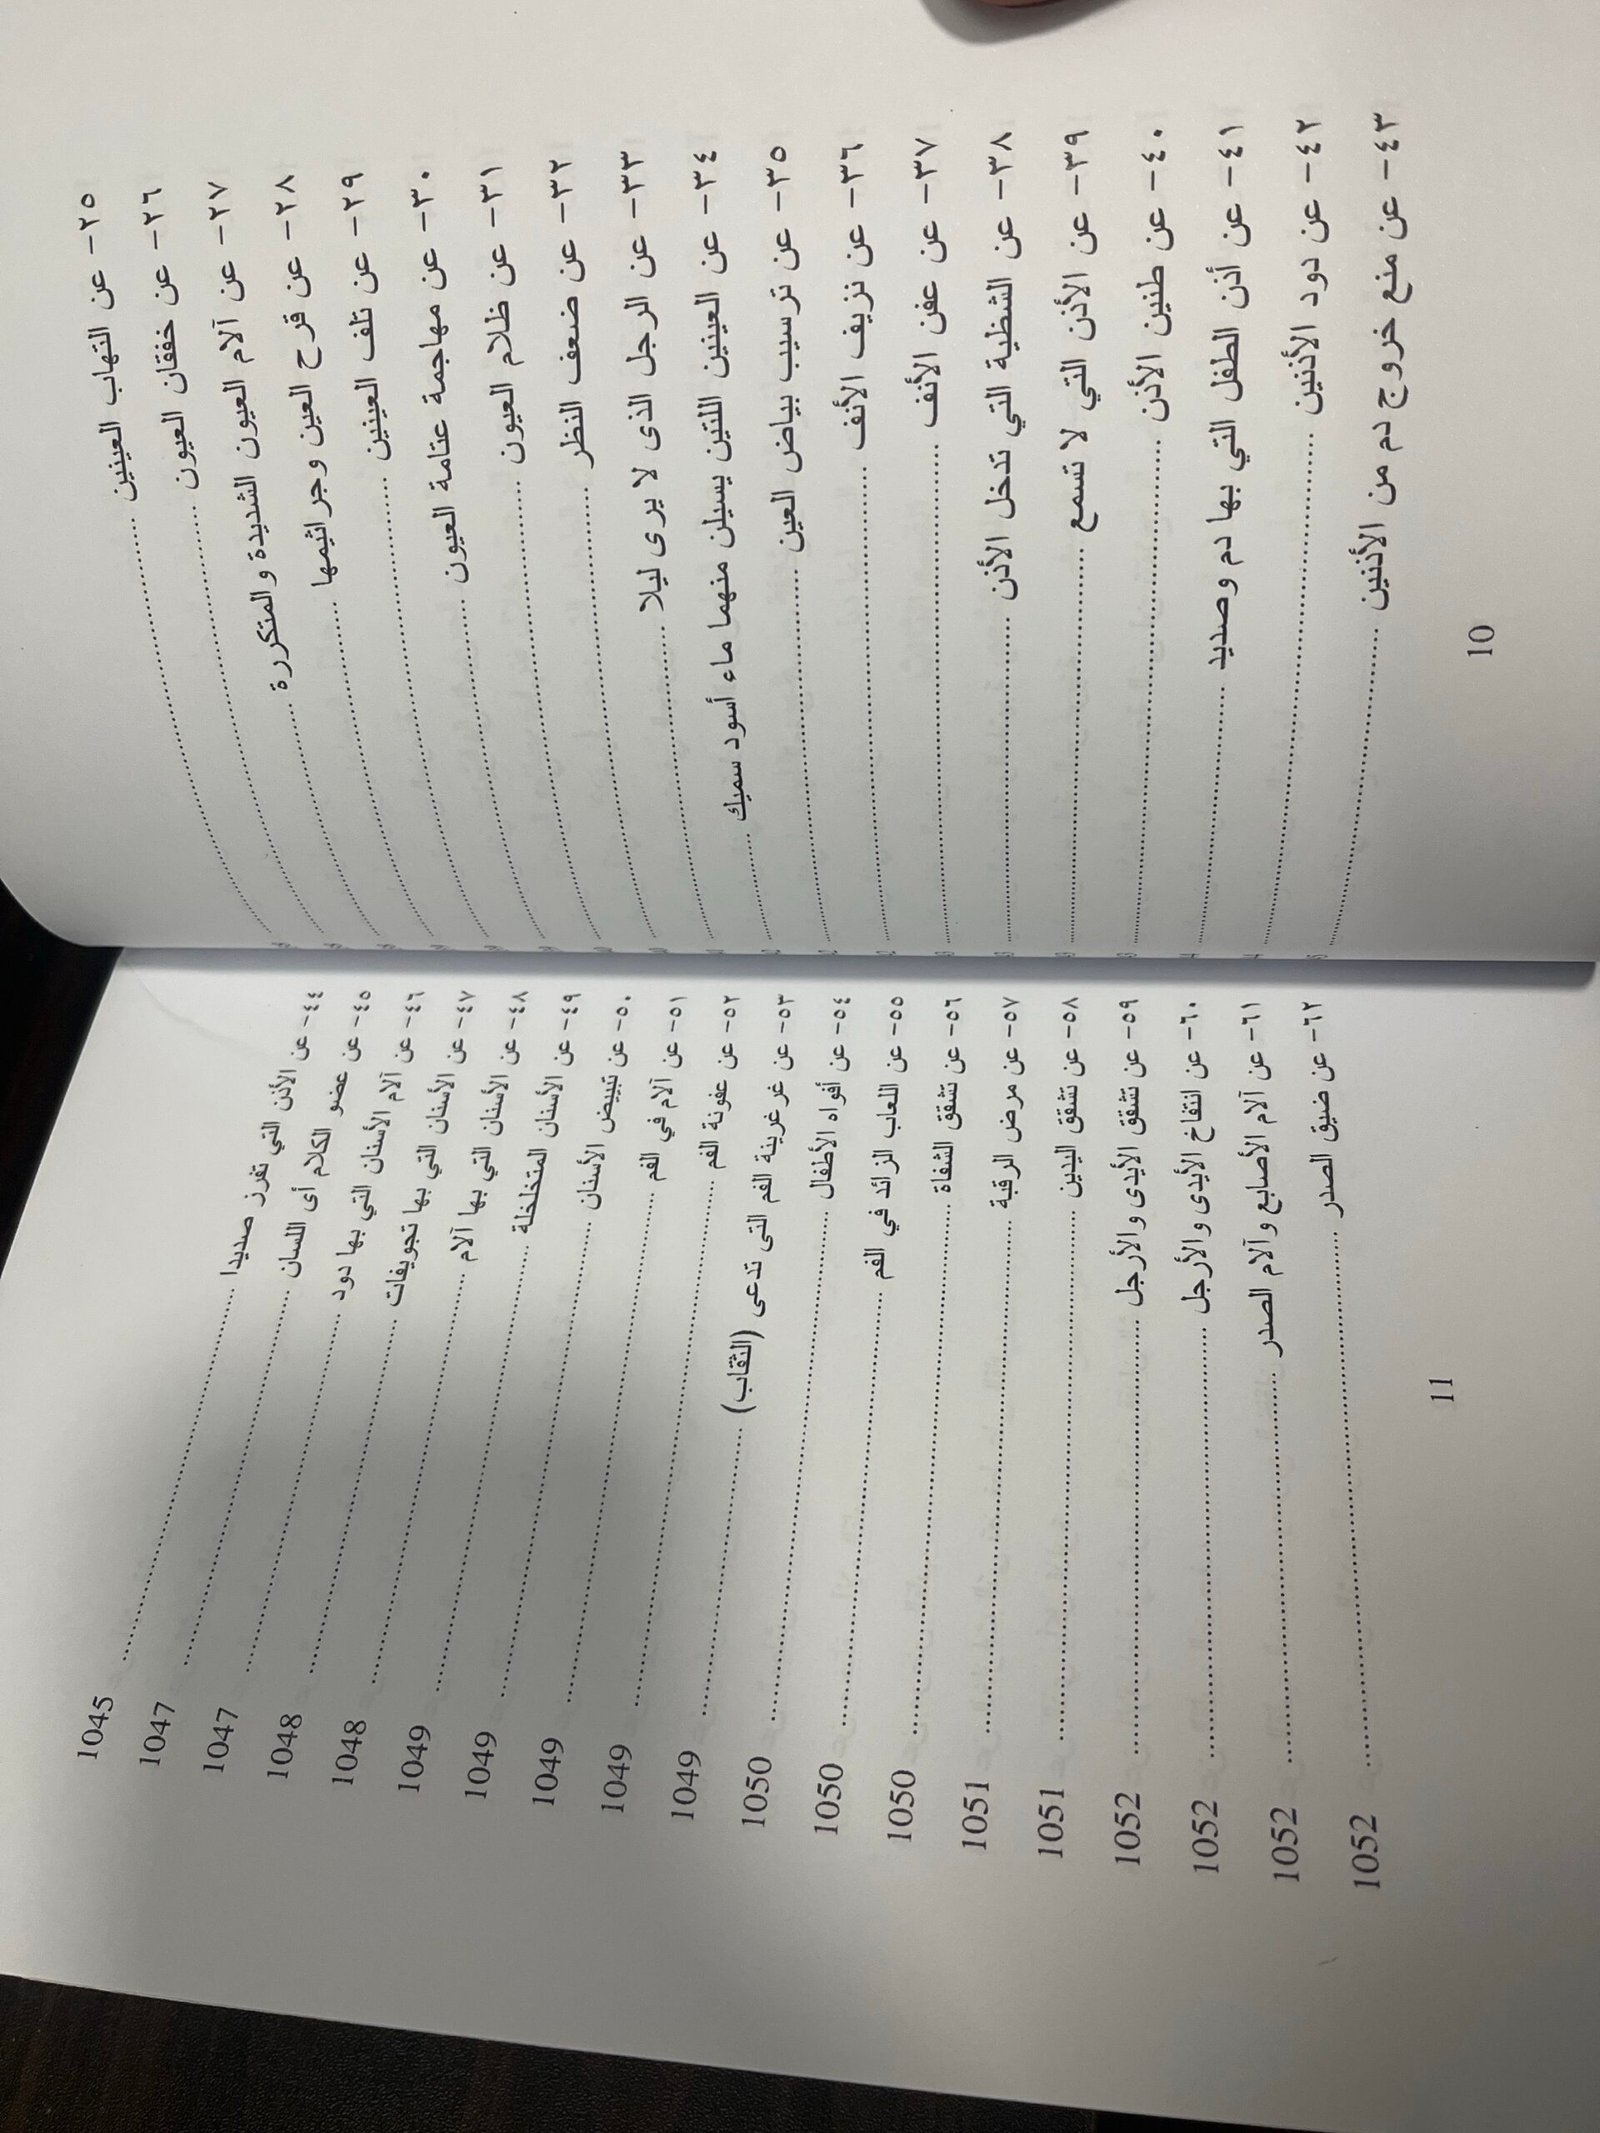 ٢٥- عن التهاب العينين
٢٦- عن خفقان العيون
٢٧- عن آلام العيون الشديدة والمتكررة
٢٨- عن قرح العين وجراثيمها
٢٩- عن تلف العينين
٣٠- عن مهاجمة عتامة العيون
٣١- عن ظلام العيون
٣٢- عن ضعف النظر
٣٣- عن الرجل الذى لا يرى ليلا
٣٤- عن العينين اللتين يسيلن منهما ماء أسود سميك
٣٥- عن ترسيب بياض العين
٣٦- عن نزيف الأنف
٣٧- عن عفن الأنف
٣٨- عن الشظية التي تدخل الأذن
٣٩- عن الأذن التي لا تسمع
٤٠- عن طنين الأذن
٤١- عن أذن الطفل التي بها دم وصديد
٤٢- عن دود الأذنين
٤٣- عن منع خروج دم من الأذنين
10
٤٤- عن الأذن التي تفرز صديدا 1045
٤٥- عن عضو الكلام أى اللسان 1047
٤٦- عن آلام الأسنان التي بها دود 1047
٤٧- عن الأسنان التي بها تجويفات 1048
٤٨- عن الأسنان التي بها آلام 1048
٤٩- عن الأسنان المتخلخلة 1049
٥٠- عن تبييض الأسنان 1049
٥١- عن آلام في الفم 1049
٥٢- عن عفونة الفم 1049
٥٣- عن غرغرينة الفم التى تدعى (النقاب) 1049
٥٤- عن أفواه الأطفال 1050
٥٥- عن اللعاب الزائد في الفم 1050
٥٦- عن تشقق الشفاة 1050
٥٧- عن مرض الرقبة 1051
٥٨- عن تشقق اليدين 1051
٥٩- عن تشقق الأيدى والأرجل 1052
٦٠- عن انتفاخ الأيدى والأرجل 1052
٦١- عن آلام الأصابع وآلام الصدر 1052
٦٢- عن ضيق الصدر 1052
11